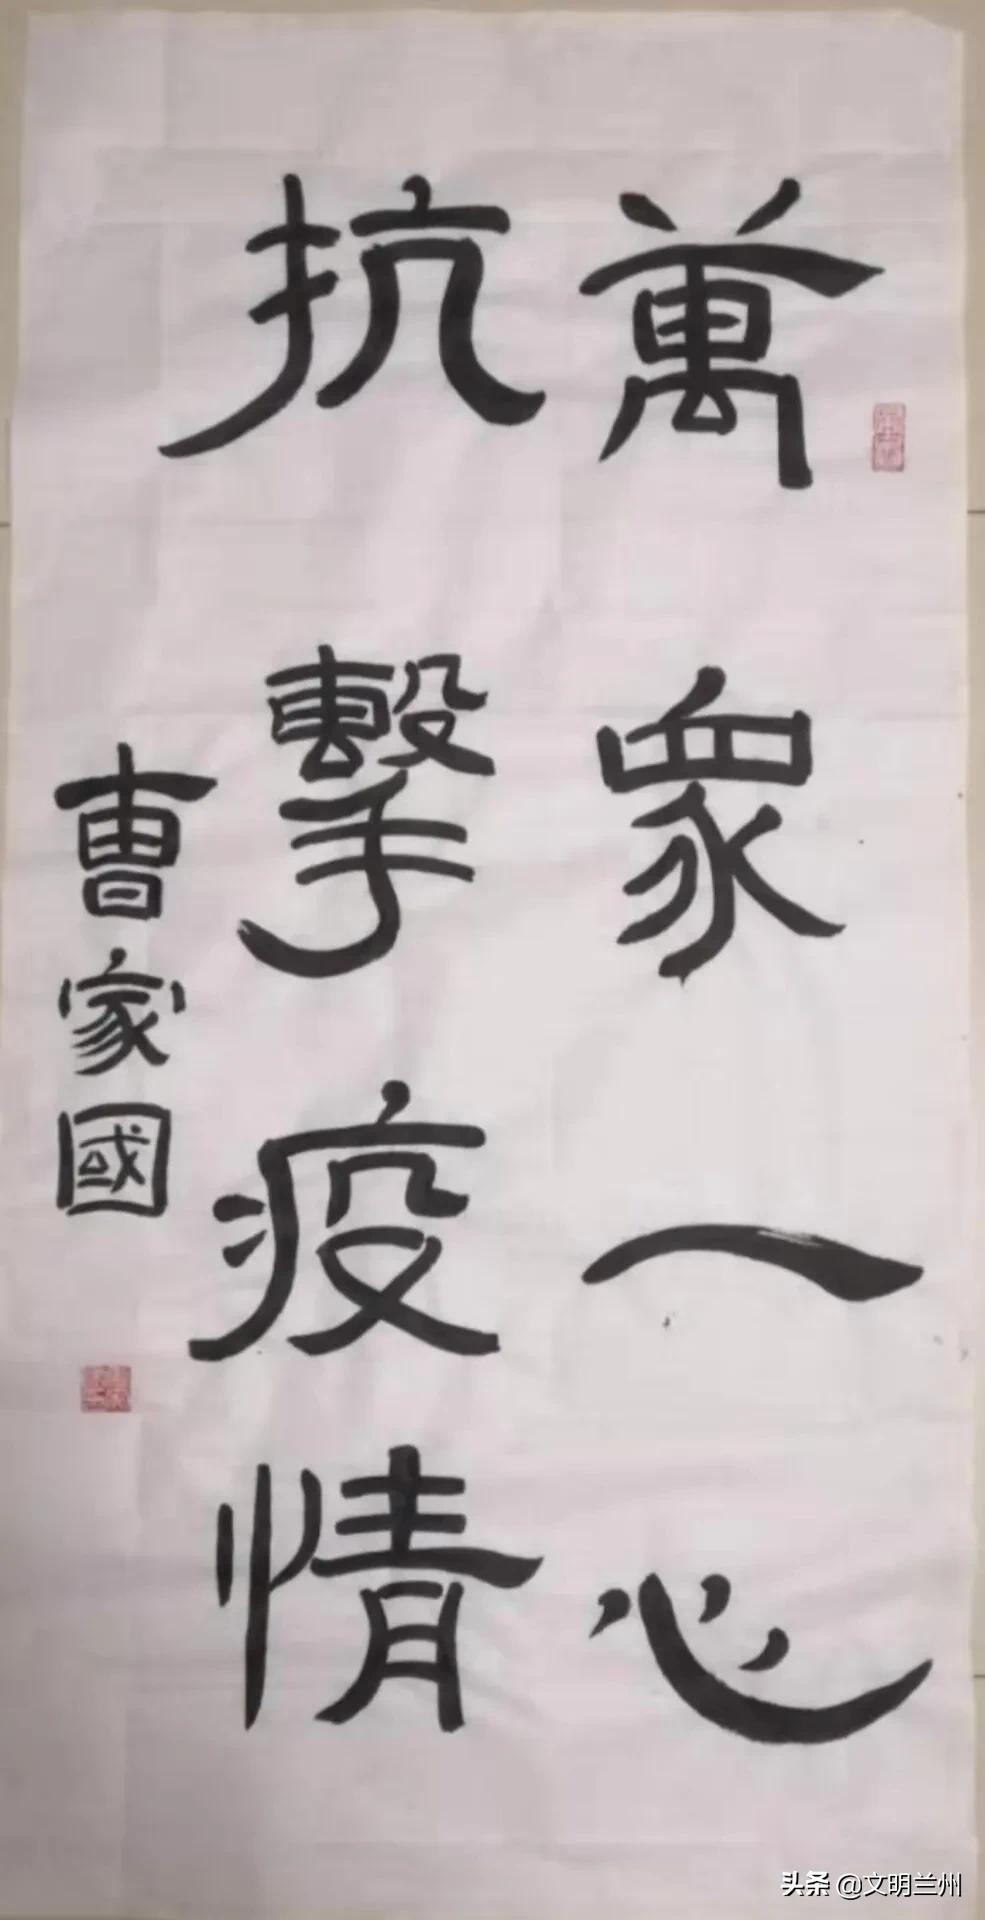 萬眾一心
抗擊疫情
曹家國
头条 @文明兰州